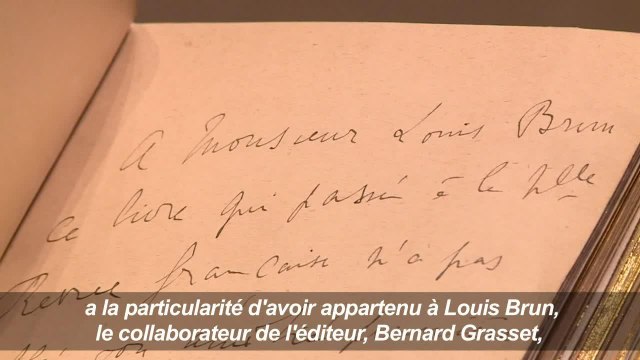 A Monsieur Louis Brun
ce livre qui passé à la Nlle
Revue française n'a pas
a la particularité d'avoir appartenu à Louis Brun,
le collaborateur de l'éditeur, Bernard Grasset,